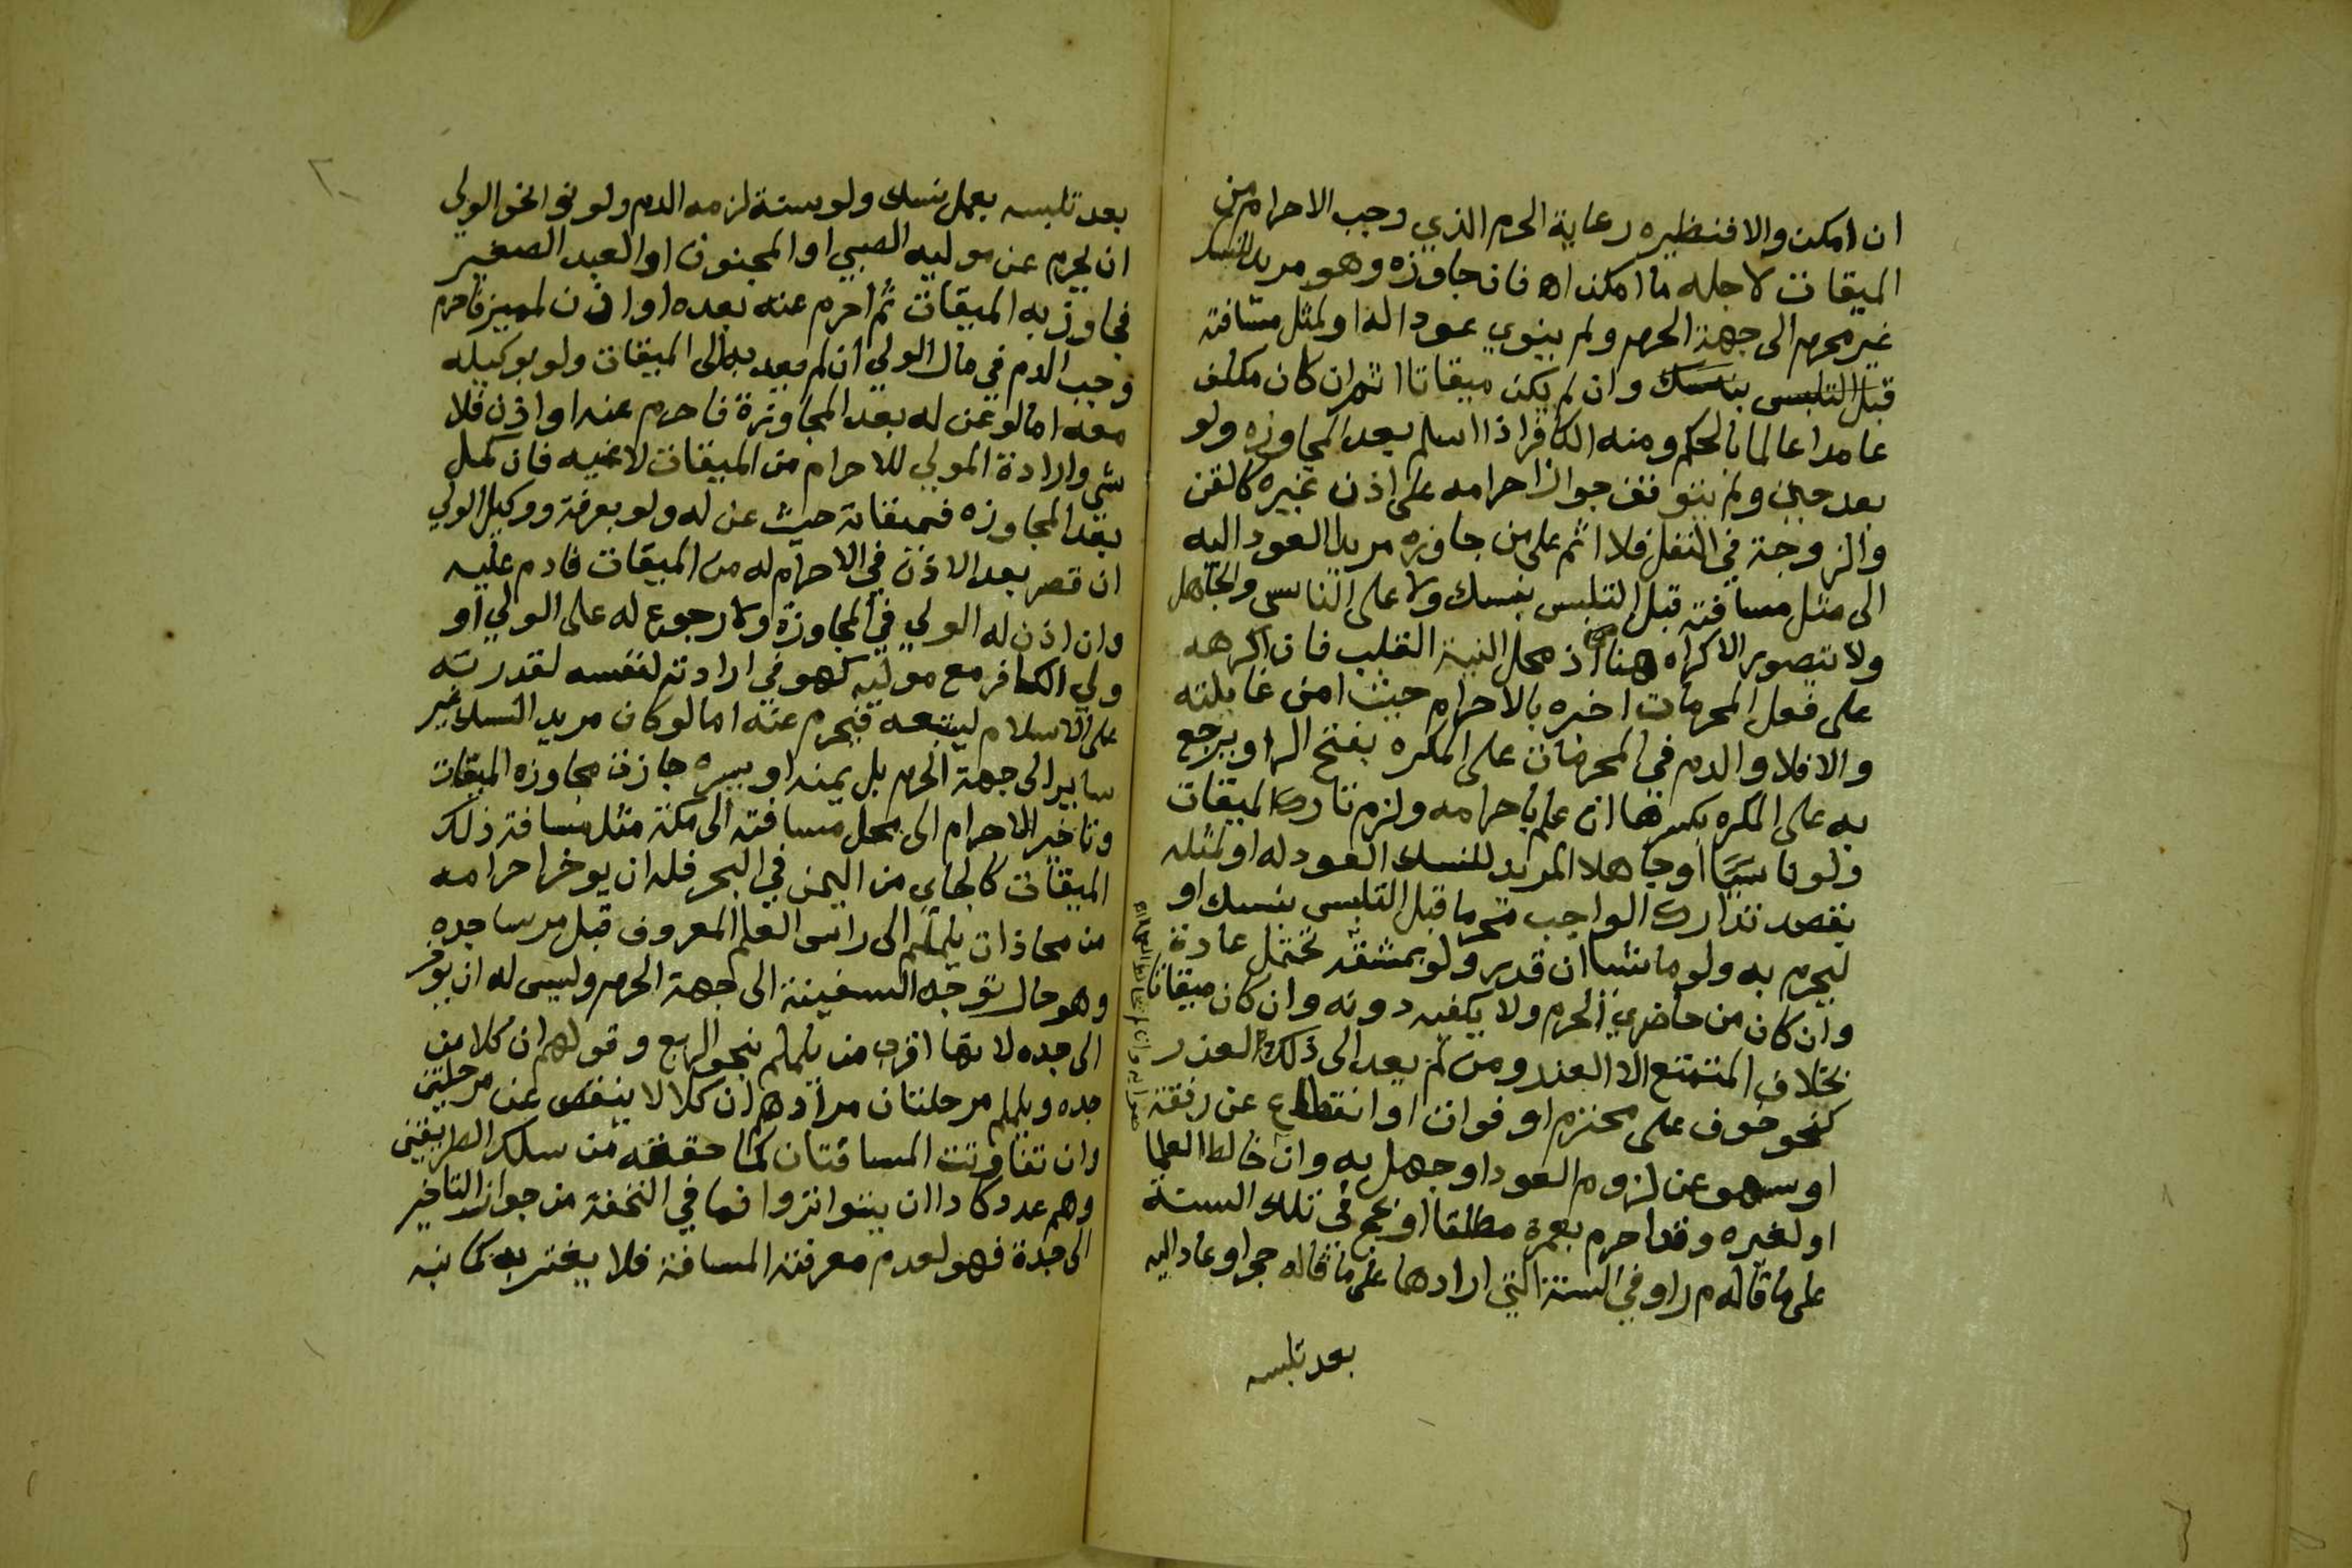 ان امكن والا فنظيره رعاية الحرم الذي وجب الاحرام من
الميقات لاجله ما امكن اه فان جاوزه وهو مريد للنسك
غير محرم الى جهة الحرم ولم ينوي عودا له او لمثل مسافته
قبل التلبس بنسك وان لم يكن ميقاتا اثم ان كان مكلف
عامدا عالما بالحكم ومنه الكافر اذا اسلم بعد المجاوزه ولو
بعد حين ولم يتوقف جواز احرامه على اذن غيره كالقن
والزوجة في النفل فلا اثم على من جاوزه مريد العود اليه
الى مثل مسافته قبل التلبس بنسك ولا على الناسي والجاهل
ولا يتصور الاكراه هنا اذ محل النية القلب فان اكرهه
على فعل المحرمات اخبره بالاحرام حيث امن غايلته
والا فلا والدم في المحرمات على المكره بفتح الرا ويرجع
به على المكره بكسرها ان علم باحرامه ولزم تارك الميقات
ولو ناسيا او جاهلا المريد للنسك العود له او لمثله
بقصد تدارك الواجب محرما قبل التلبس بنسك او
ليحرم به ولو ماشيا ان قدر ولو بمشقة تحتمل عادة
وان كان من حاضري الحرم ولا يكفيه دونه وان كان ميقاتا
بخلاف المتمتع الا لعذر ومن لم يعد الى ذلك العذر
كنحو خوف على محترم او فوات او انقطاع عن رفقة
او سهو عن لزوم العود او جهل به وان خالط العلما
او لغيره وقد احرم بعمرة مطلقا او بحج في تلك السنة
على ما قاله م ر او في السنة التي ارادها على ما قاله حج او عاد اليه
بعد تلبسه
بعد تلبسه بعمل نسك ولو سنة لزمه الدم ولو نوا نحو الولي
ان يحرم عن موليه الصبي او المجنون او العبد الصغير
فجاوز به الميقات ثم احرم عنه بعده او اذن لمميز فاحرم
وجب الدم في مال الولي ان لم يعد به الى الميقات ولو بوكيله
معه اما لو عن له بعد المجاوزة فاحرم عنه او اذن فلا
شي وارادة المولي للاحرام من الميقات لاغيه فان كمل
بعد المجاوزه فميقاته حيث عن له ولو بعرفة ووكيل الولي
ان قصر بعد الاذن في الاحرام له من الميقات فادم عليه
وان اذن له الولي في المجاوزة ولا رجوع له على الولي او
ولي الكافر مع موليه كهو في ارادته لنفسه لقدرته
على الاسلام ليتبعه فيحرم عنه اما لو كان مريد النسك غير
ساير الى جهة الحرم بل يمنه او يسره جازت مجاوزه الميقات
وتاخير الاحرام الى محل مسافته الى مكة مثل مسافة ذلك
الميقات كالجاي من اليمن في البحر فله ان يوخر احرامه
من محاذات يلملم الى راس العلم المعروف قبل مرسا جده
وهو حال توجه السفينة الى جهة الحرم وليس له ان يوخر
الى جده لانها اقرب من يلملم بنحو الربع وقولهم ان كلا من
جده ويلملم مرحلتان مرادهم ان كلا لا ينقص عن مرحلتين
وان تفاوتت المسافتان كما حققه من سلك الطريقين
وهم عدد كادا ان يتواتروا فما في التحفة من جواز التاخير
الى جدة فهو لعدم معرفة المسافة فلا يغتر به كما نبه